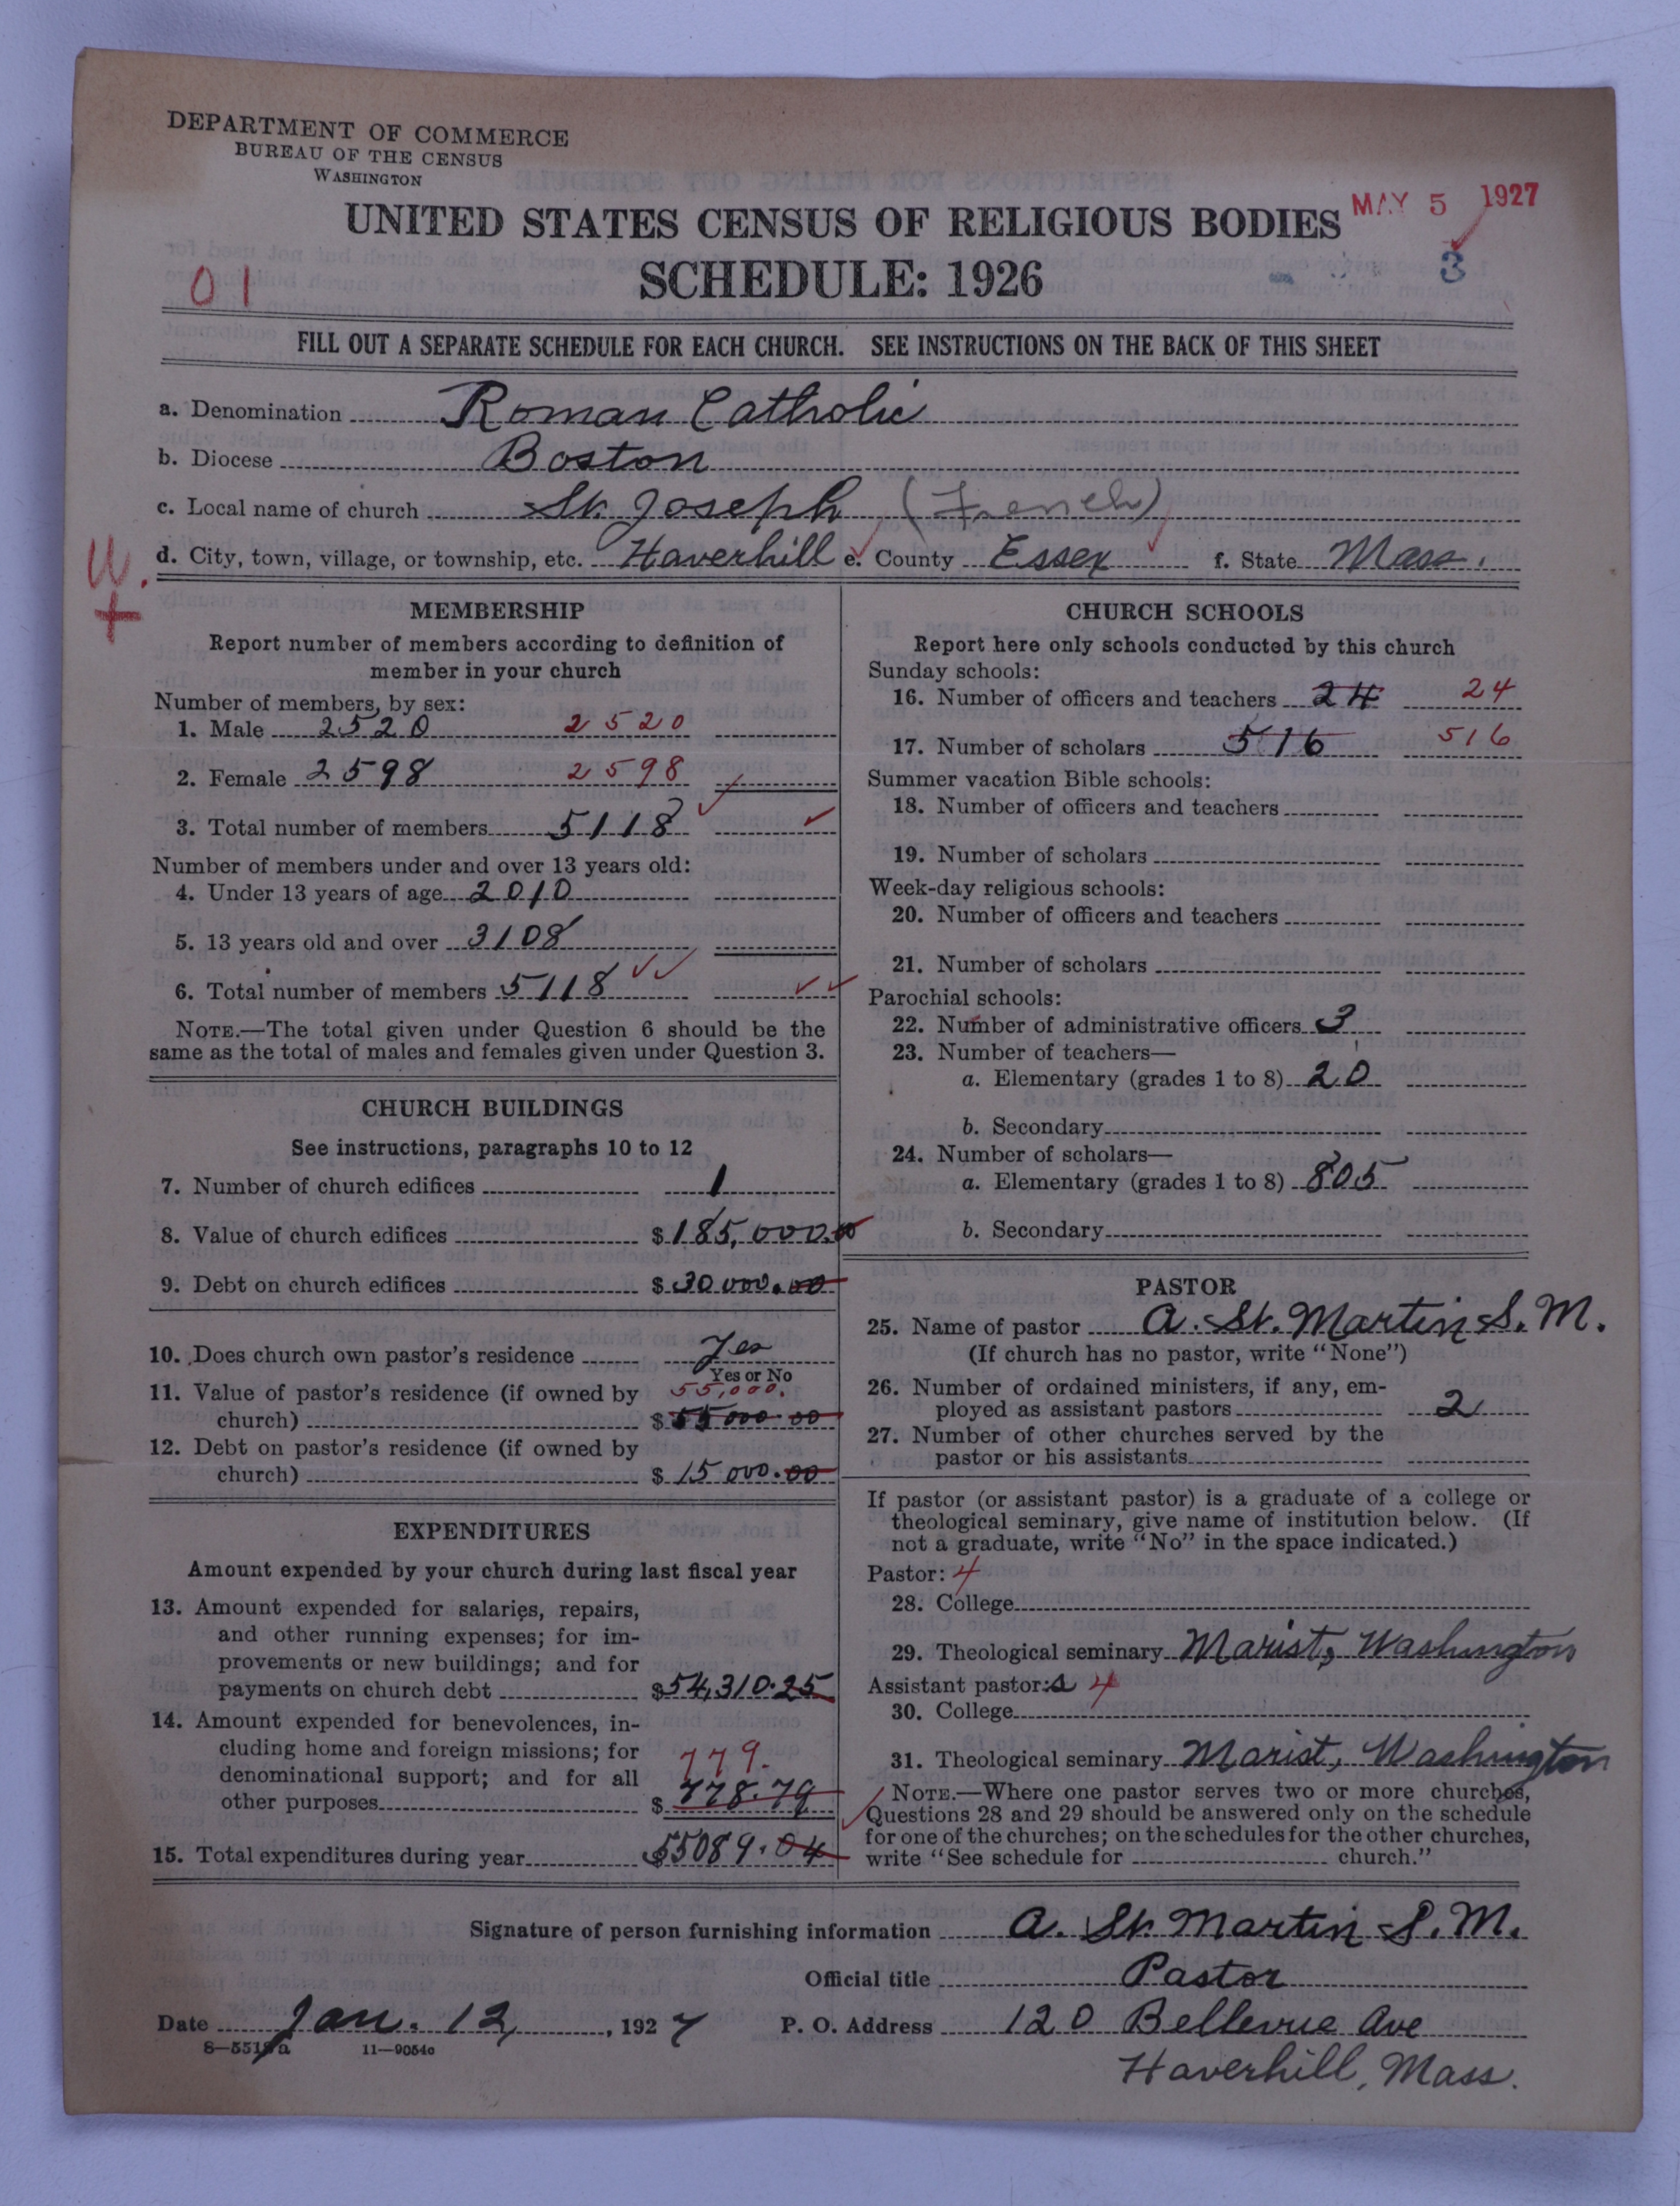 DEPARTMENT OF COMMERCE
BUREAU OF THE CENSUS
WASHINGTON
UNITED STATES CENSUS OF RELIGIOUS BODIES
MAY 5 1927
SCHEDULE: 1926
3
01
FILL OUT A SEPARATE SCHEDULE FOR EACH CHURCH. SEE INSTRUCTIONS ON THE BACK OF THIS SHEET
a. Denomination Roman Catholic
b. Diocese Boston
c. Local name of church St. Joseph (French)
d. City, town, village, or township, etc. Haverhill e. County Essex f. State Mass.
W.
+
MEMBERSHIP
Report number of members according to definition of
member in your church
Number of members, by sex:
1. Male 2520 2520
2. Female 2598 2598
3. Total number of members 5118
Number of members under and over 13 years old:
4. Under 13 years of age 2010
5. 13 years old and over 3108
6. Total number of members 5118
NOTE.—The total given under Question 6 should be the
same as the total of males and females given under Question 3.
CHURCH BUILDINGS
See instructions, paragraphs 10 to 12
7. Number of church edifices 1
8. Value of church edifices $185,000.00
9. Debt on church edifices $30000.00
10. Does church own pastor's residence Yes
Yes or No
11. Value of pastor's residence (if owned by 55,000.
church) $55000.00
12. Debt on pastor's residence (if owned by
church) $15000.00
EXPENDITURES
Amount expended by your church during last fiscal year
13. Amount expended for salaries, repairs,
and other running expenses; for im-
provements or new buildings; and for
payments on church debt $54,310.25
14. Amount expended for benevolences, in-
cluding home and foreign missions; for 779.
denominational support; and for all
other purposes $778.79
15. Total expenditures during year $55089.04
CHURCH SCHOOLS
Report here only schools conducted by this church
Sunday schools:
16. Number of officers and teachers 24 24
17. Number of scholars 516 516
Summer vacation Bible schools:
18. Number of officers and teachers
19. Number of scholars
Week-day religious schools:
20. Number of officers and teachers
21. Number of scholars
Parochial schools:
22. Number of administrative officers 3
23. Number of teachers—
a. Elementary (grades 1 to 8) 20
b. Secondary
24. Number of scholars—
a. Elementary (grades 1 to 8) 805
b. Secondary
PASTOR
25. Name of pastor A. St. Martin S.M.
(If church has no pastor, write "None")
26. Number of ordained ministers, if any, em-
ployed as assistant pastors 2
27. Number of other churches served by the
pastor or his assistants
If pastor (or assistant pastor) is a graduate of a college or
theological seminary, give name of institution below. (If
not a graduate, write "No" in the space indicated.)
Pastor: 4
28. College
29. Theological seminary Marist, Washington
Assistant pastor:s 4
30. College
31. Theological seminary Marist, Washington
NOTE.—Where one pastor serves two or more churches,
Questions 28 and 29 should be answered only on the schedule
for one of the churches; on the schedules for the other churches,
write "See schedule for church."
Signature of person furnishing information A. St. Martin S.M.
Official title Pastor
Date Jan. 12, 1927 P. O. Address 120 Bellevue Ave
8—5518a 11—9054c
Haverhill, Mass.